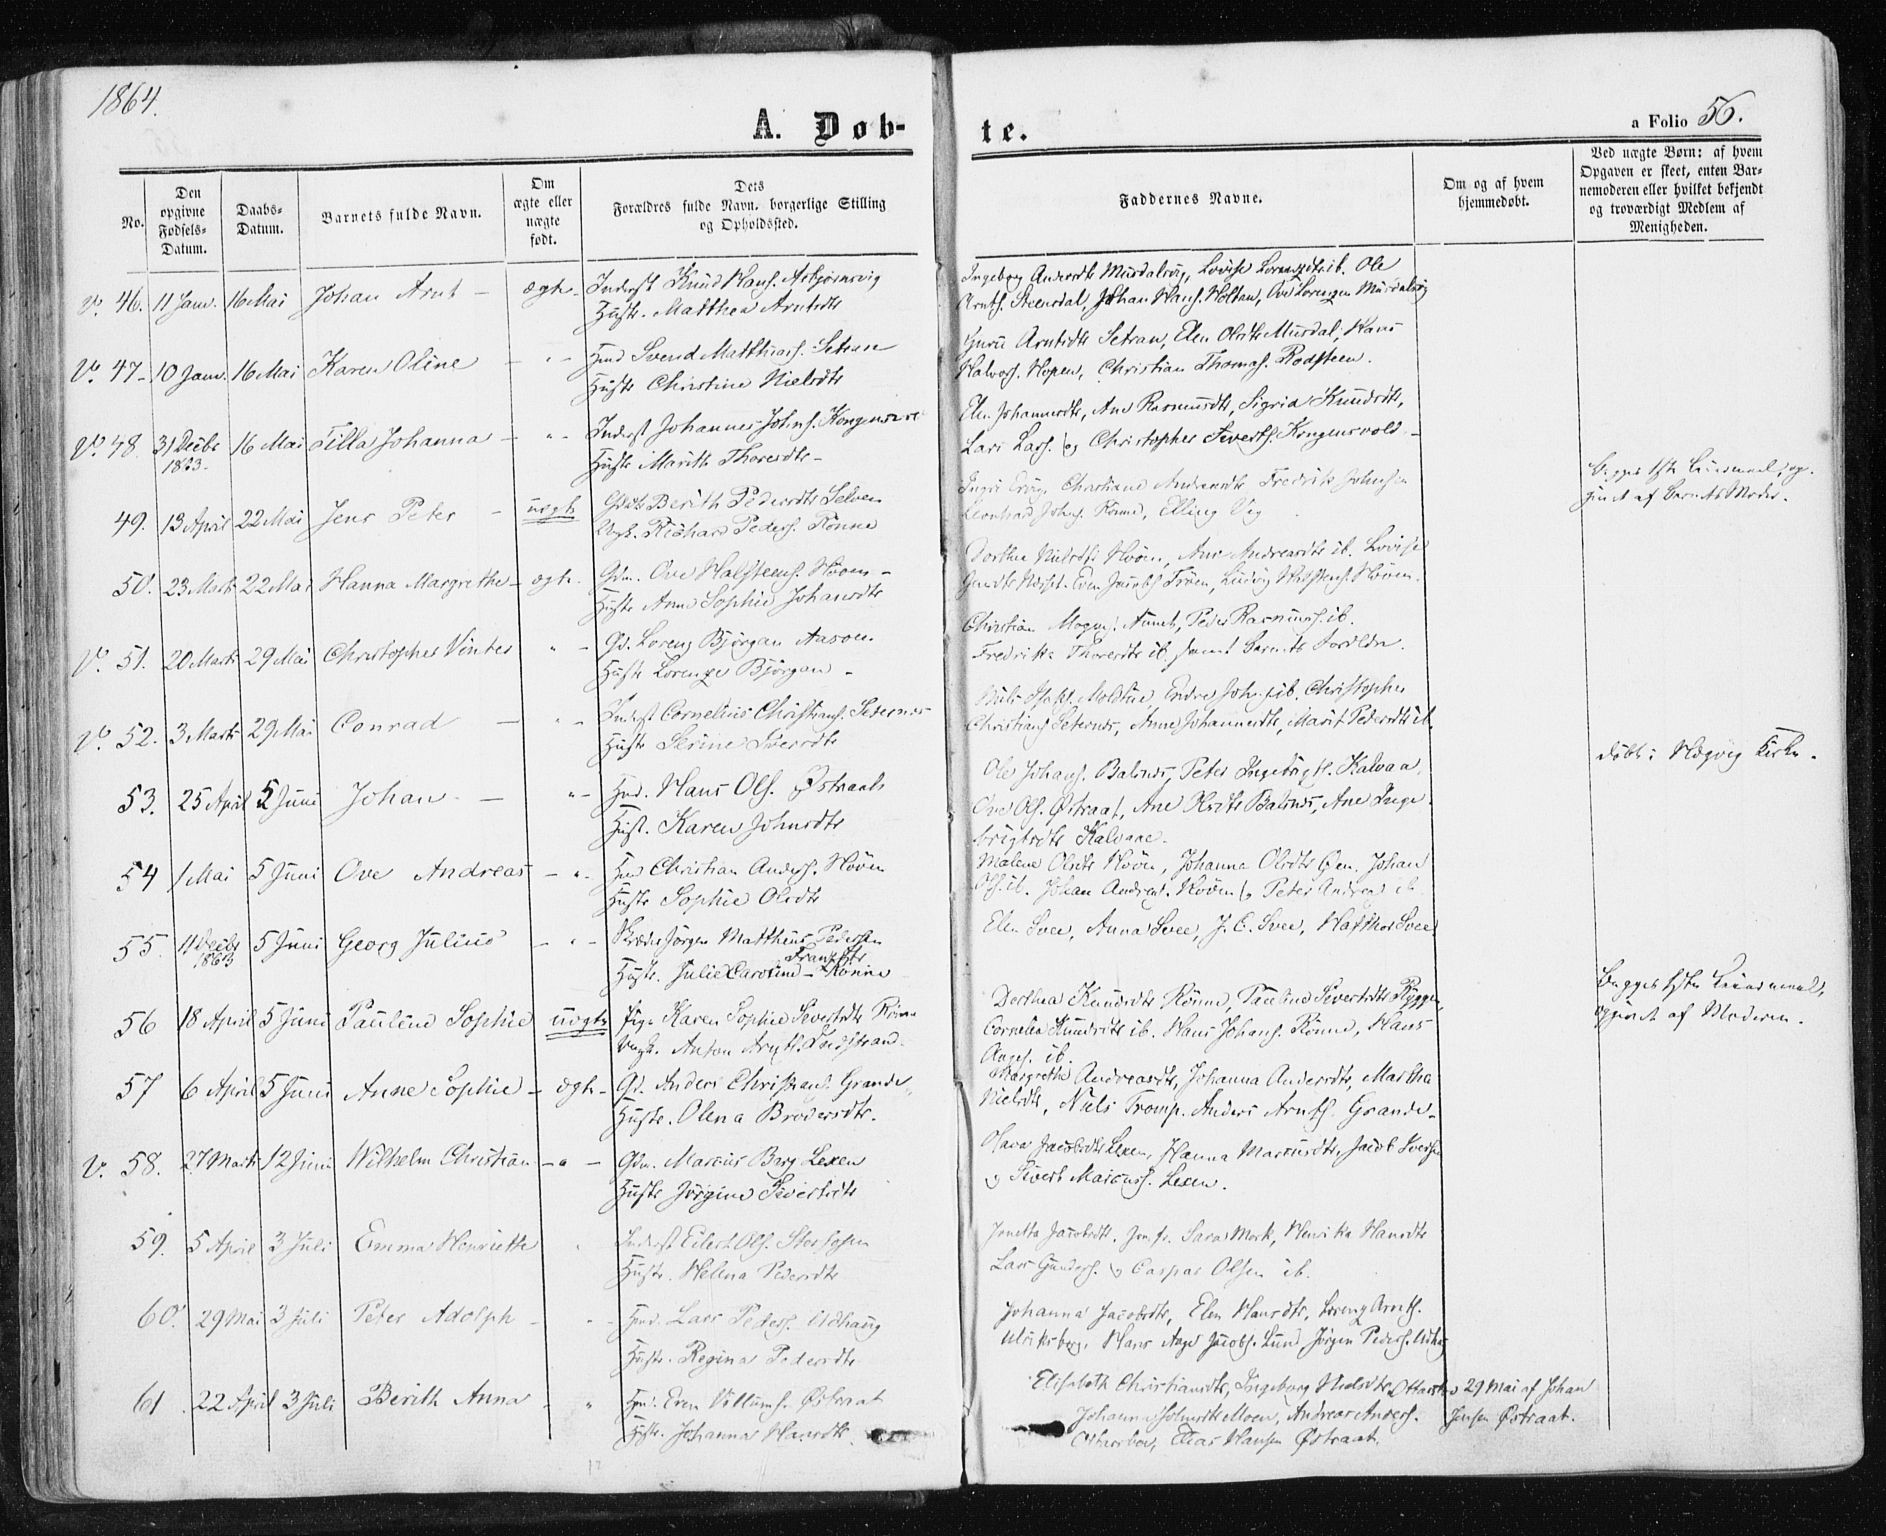 1864.
A. Døb-
te.
a Folio 56.
No.
Den
opgivne
Fødsels-
Datum.
Daabs-
Datum.
Barnets fulde Navn.
Om
ægte eller
uægte
født.
Dets
Forældres fulde Navn, borgerlige Stilling
og Opholdssted.
Faddernes Navne.
Om og af hvem
hjemmedøbt.
Ved uægte Børn: af hvem
Opgaven er skeet, enten Bar-
nemoderen eller hvilket bekjendt
og troværdigt Medlem af
Menigheden.
V. 46. 11 Janv. 16 Mai Johan Arnt - ægte. Inderst Knud Hans. Asbjørnsvig
Hustr. Matthea Arntsdtr
Ingeborg Andersdtr Musdalsvig, Lovise Lorentzdtr ib. Ole
Arnts. Steendal, Johan Hans. Holtan, Ove Lorenzen Musdalsvig
V. 47. 10 Janv. 16 Mai Karen Oline - " - Hmd Svend Matthias. Setran
Hustr Christine Nielsdtr
Guru Arntsdtr Setran, Elen Olsdtr Musdal, Hans
Halvors. Hopen, Christian Thomas. Rodsteen.
V. 48. 31 Decbr 1863. 16 Mai Tilla Johanna - " - Inderst Johannes Johns. Kongensvold
Hustr Marith Thoresdtr -
Elen Johannesdtr, Ane Rasmusdtr, Sigrid Knudsdtr,
Lars Lars. og Christopher Siverts. Kongensvold -
49. 13 April 22 Mai Jens Peter - uægte Gdsd. Berith Pedersdtr Selven
Ungk. Richard Peders. Rønne
Christiane Andreasdtr Fredrik Johnsen
Leonhard Johns. Rønne, Elling Vig
Begges 1ste Leiermaal, op-
givet af Barnets Moder.
50. 23 Marts 22 Mai Hanna Margrethe - ægte. Gdm. Ove Halsteens. Hoven -
Hustr Anne Sophie Johansdtr
Dorthea Nielsdtr Hoven, Ane Andreasdtr ib. Lovise
Even Jacobs. Troen, Ludvig Halstens. Hoven.
V. 51. 20 Marts 29 Mai Christopher Winter " - Gd. Lorenz Bjørgan Aasen.
Hustr Lorenze Bjørgan -
Christian Mogens. Aunet, Peder Rasmuss. ib.
Fredrikke Thoresdtr ib. samt Barnets Forældre.
V. 52. 3 Marts 29 Mai Conrad - " - Inderst Cornelius Christians. Seternes
Hustr Serine Iversdtr
Endre Joh. ib. Christopher
Christians. Seternes, Anne Johannesdtr, Marit Pedersdtr ib.
53. 25 April 5 Juni Johan - " - Hmd. Hans Ols. Østraat
Hust. Karen Johnsdtr
Ole Johans. Balsnes, Peter Ingebrigts. Kalvaa,
Ove Ols. Østraat, Ane Olsdtr Balsnes, Ane Inge-
brigtsdtr Kalvaae.
døbt i Hegvig Kirke.
54 1 Mai 5 Juni Ove Andreas - " - Hmd Christian Anders. Hoven
Hustr Sophie Olsdtr
Malene Olsdtr Hoven, Johanna Olsdtr Øen, Johan
Ols. ib. Johan Andreas. Hoven og Peter Andreas. ib.
55. 11 Decbr 1863 5 Juni Georg Julius - " - Skræder Jørgen Mattheus Pedersen
Hustr. Julie Caroline Frantzdtr - Rønne
Elen Svee, Anna Svee, J. C. Svee, Hafthor Svee
56 18 April 5 Juni Pauline Sophie uægte Pige Karen Sophie Sivertsdtr Rønne
Ungk. Anton Arnts. Indstrand.
Dorthea Knudsdtr Rønne, Pauline Sivertsdtr Rygge,
Cornelia Knudsdtr ib. Hans Johans. Rønne, Hans
Aages. ib.
Begges 1ste Leiermaal,
opgivet af Moderen.
57 6 April 5 Juni Anne Sophie - ægte - Gd. Anders Christians. Grande,
Hustr. Olena Brodersdtr.
Margrethe Andreasdtr, Johanna Andersdtr, Martha
Nielsdtr, Niels Tromp. Anders Arnts. Grande -
V. 58. 27 Marts 12 Juni Wilhelm Christian - " - Gdm. Marcus Berg Lexen
Hustr Jørgine Sivertsdtr
Olava Jacobsdtr Lexen, Hanna Marcusdtr, Jacob Iversen
og Sivert Marcus. Lexen.
59. 5 April 3 Juli Emma Henriette " Inderst Eilert Ols. Storfosen
Hustr. Helena Pedersdtr
Jonetta Jacobsdtr. Jomfr. Sara Mork, Henrikka Hansdtr
Lars Gunders. og Caspar Olsen ib.
60. 29 Mai 3 Juli Peter Adolph - " - Hmd. Lars Peders. Udhaug
Hustr. Regina Pedersdtr
Johanna Jacobsdtr, Elen Hansdtr, Lorenz Arnts.
Ulriksborg, Hans Aage Jacobs. Lund Jørgen Peders. Udhaug
61. 22 April 3 Juli Berith Anna - " Hmd. Even Villums. Østraat
Hustr. Johanna Hansdtr.
Elisabeth Christiansdtr, Ingeborg Nielsdtr Ottersbo
Johanna Johnsdtr Moen, Andreas Anders.
Ottersboe, Elias Hansen Østraat.
29 Mai af Johan
Jensen Østraat.